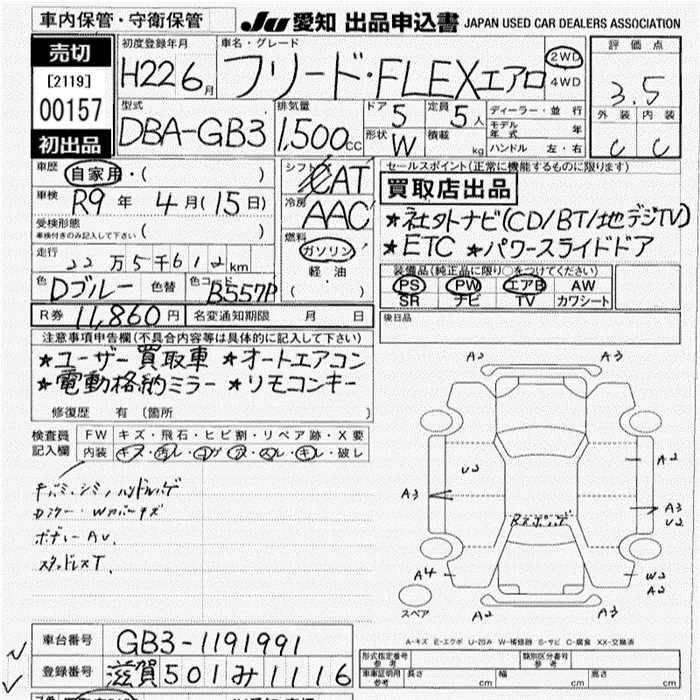 車内保管・守衛保管
JU 愛知 出品申込書 JAPAN USED CAR DEALERS ASSOCIATION
売切
[2119]
00157
初出品
初度登録年月
H22 6月
車名・グレード
フリード・FLEXエアロ
2WD
4WD
評価点
3.5
外装 内装
C C
型式
DBA-GB3
排気量
1,500cc
ドア 5
定員 5人
形状 W
積載 kg
ディーラー・並行
モデル年式 年
ハンドル 左・右
車歴
自家用・( )
車検
R9年 4月(15日)
受検形態
車検付きのみ記入して下さい ( )
走行
22万5千612km
色 Dブルー 色替
色コード B557P
シフト CAT
冷房 AAC
燃料
ガソリン
軽油
( )
セールスポイント(正常に機能するものに限ります)
買取店出品
★社外ナビ(CD/BT/地デジTV)
★ETC ★パワースライドドア
装備品(純正品に限り○をつけてください)
PS PW エアB AW
SR ナビ TV カワシート
R券 11,860円
名変通知期限 月 日
後日品
注意事項申告欄(不具合内容等は具体的に記入して下さい)
★ユーザー買取車 ★オートエアコン
★電動格納ミラー ★リモコンキー
修復歴 有 (箇所 )
検査員記入欄
FW キズ・飛石・ヒビ割・リペア跡・X要
内装 キズ・汚レ・コゲ・ア・スレ・キレ・破レ
キズ、シミ、ハンドルハゲ
ボディーAU.
スタッドレスT.
A2 A3
U2
A2
A3
A3
U2
A4
W2
A2
A2 A3
スペア
A-キズ E-エクボ U-凹み W-補修跡 S-サビ C-腐食 XX-交換済
車台番号 GB3-1191991
登録番号 滋賀 501 み 1116
形式指定番号
参考
類別区分番号
参考
車庫証明用
参考
長さ cm 幅 cm 高さ cm